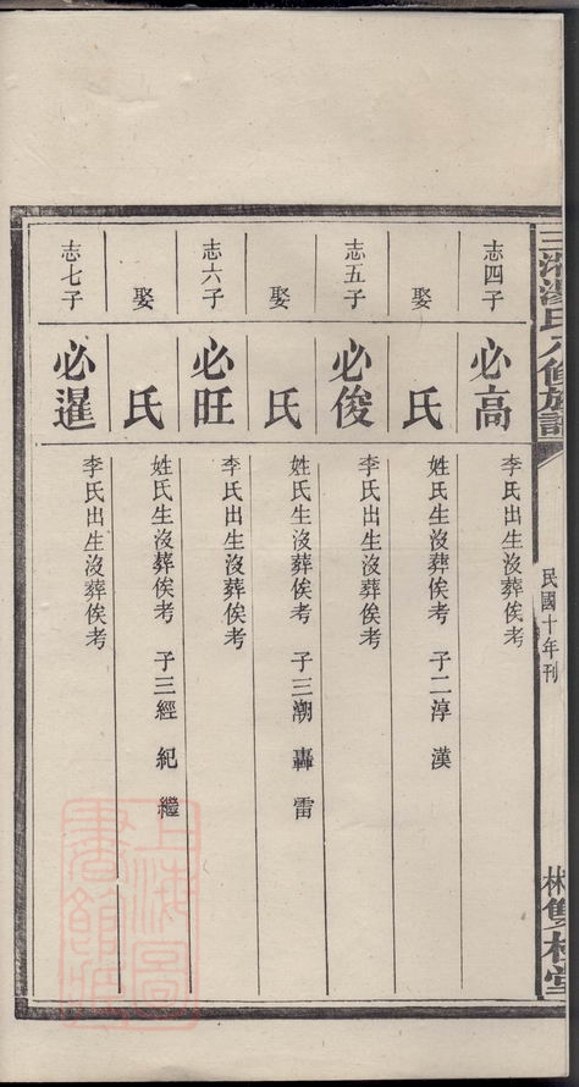 志四子
必高
李氏出生没葬俟考
娶
氏
姓氏生没葬俟考 子二淳 漢
志五子
必俊
李氏出生没葬俟考
娶
氏
姓氏生没葬俟考 子三潮 轟 雷
志六子
必旺
李氏出生没葬俟考
娶
氏
姓氏生没葬俟考 子三經 紀 繼
志七子
必暹
李氏出生没葬俟考
民國十年刊
上海圖書館藏